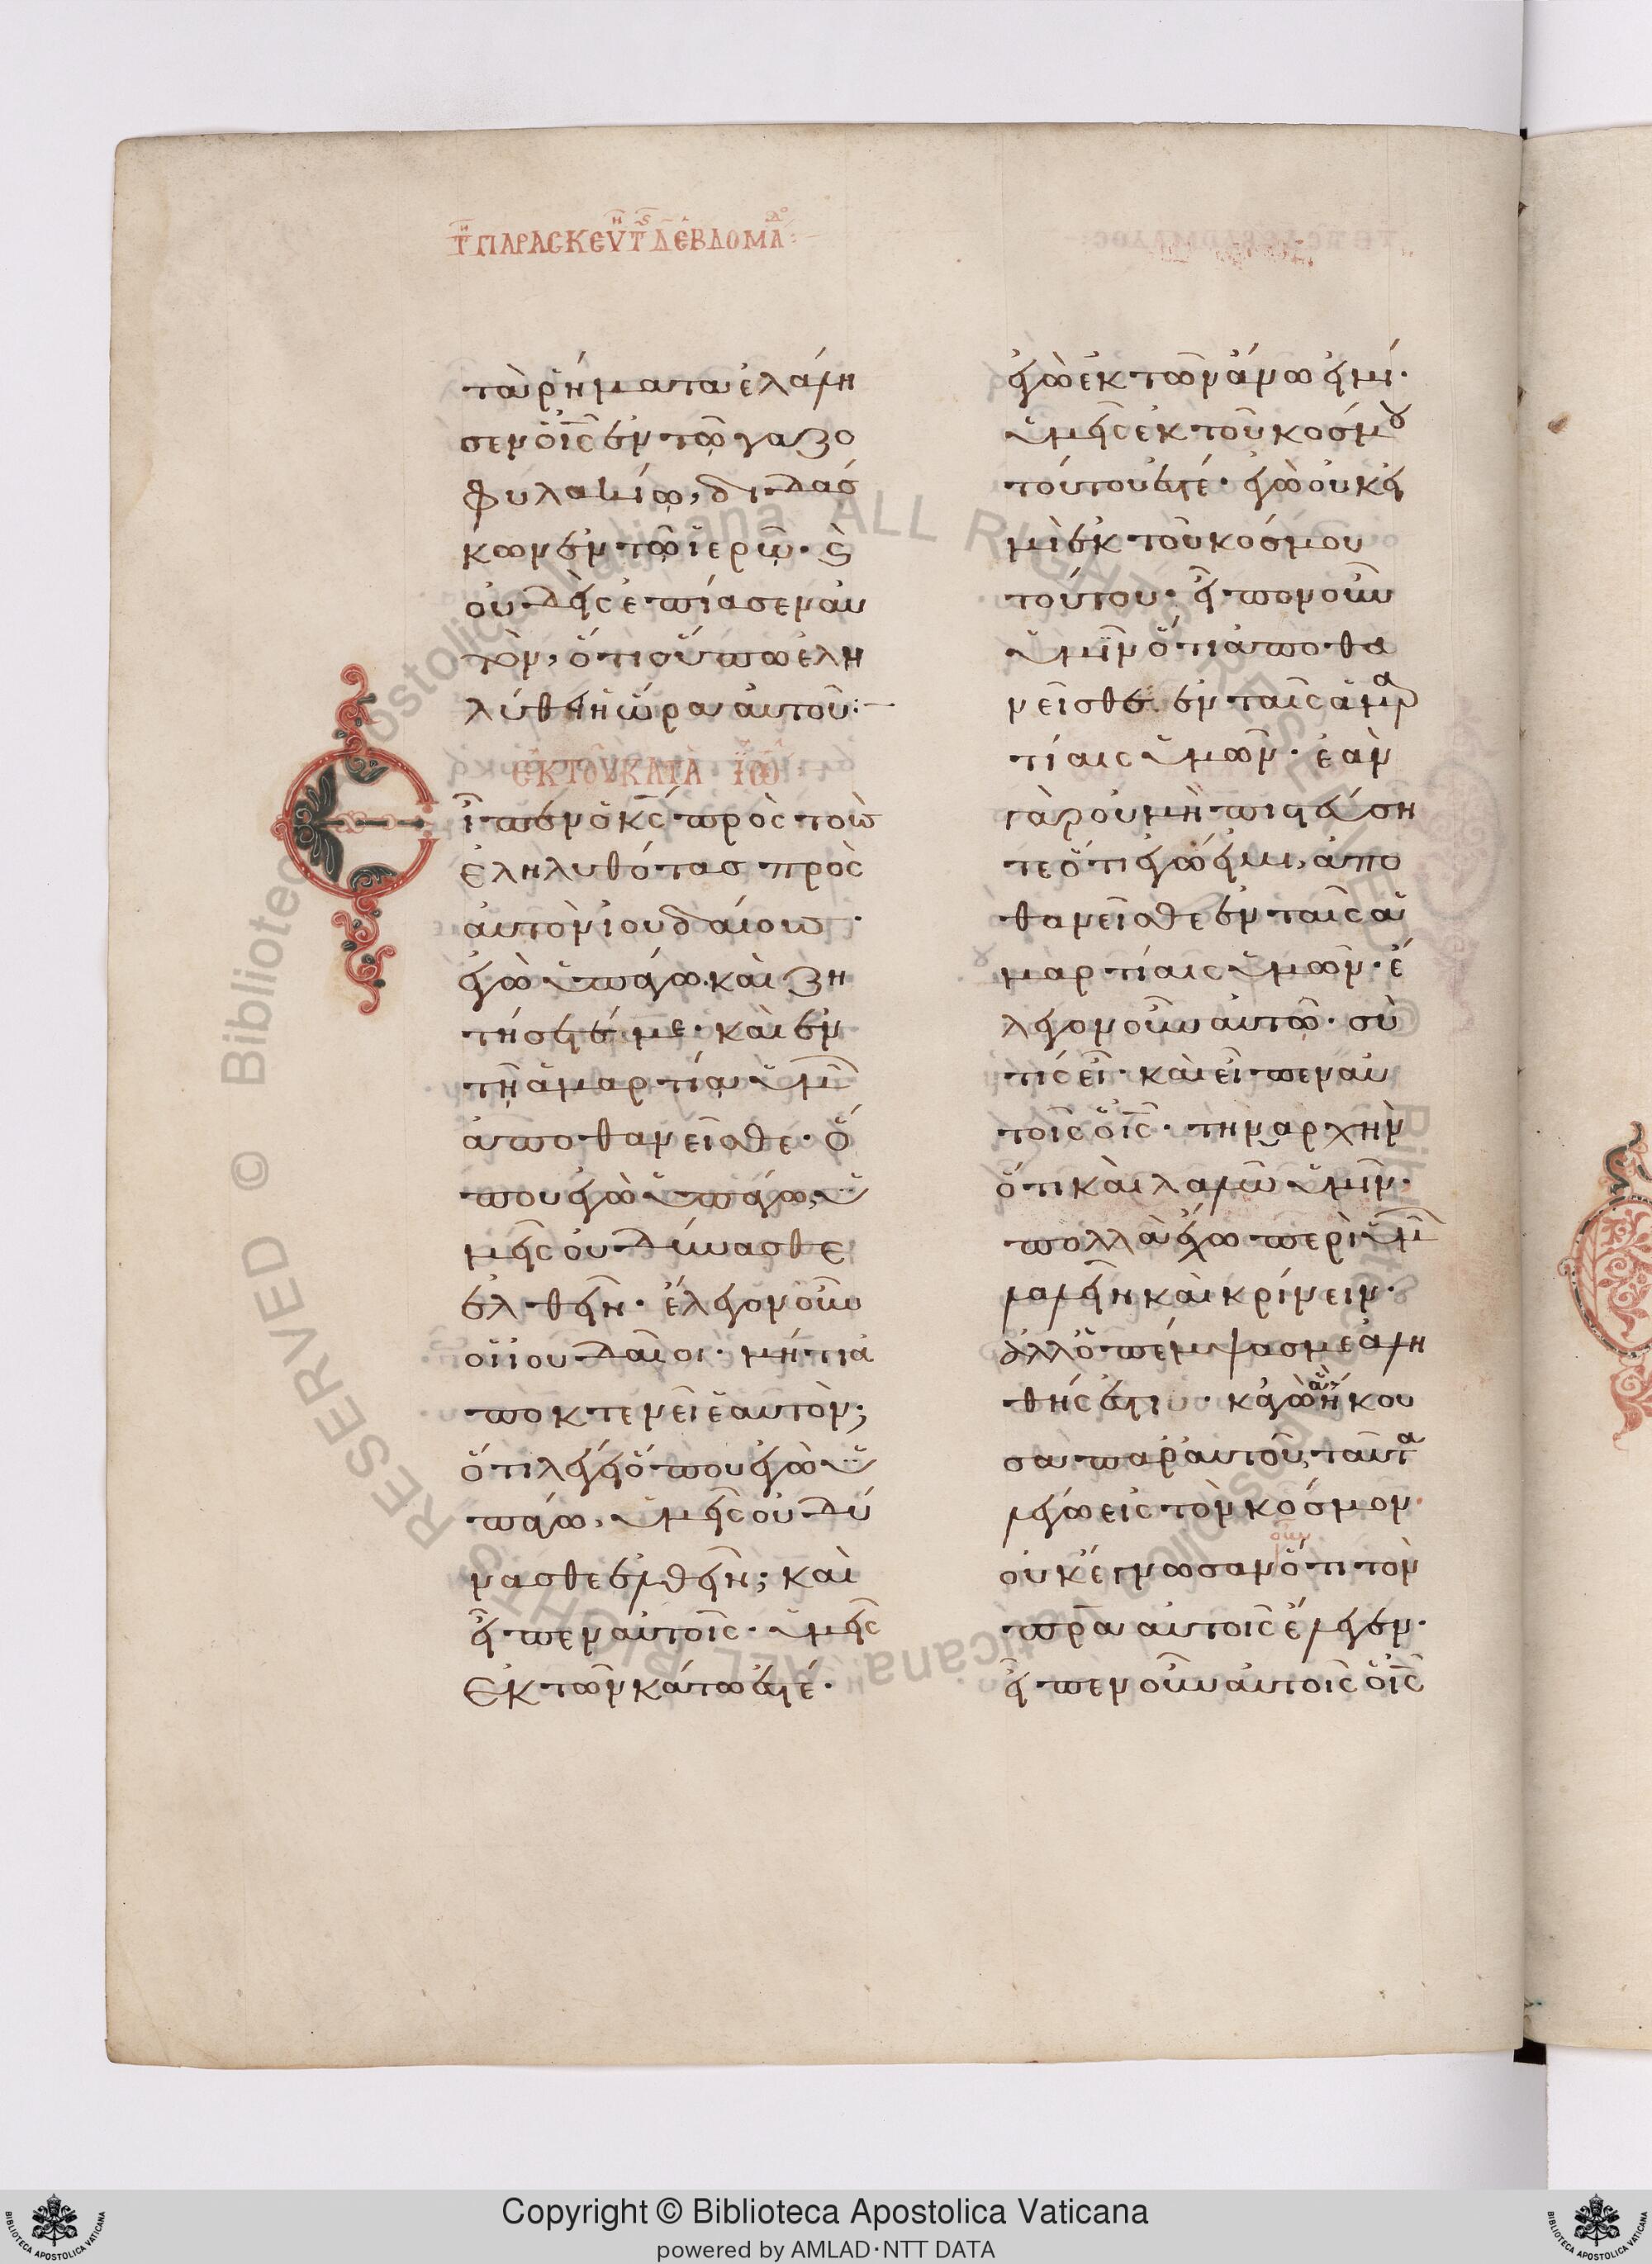 Τῇ ΠΑΡΑΣΚΕΥῇ Τῆς Δ ΕΒΔΟΜΑδο:
τὰ ῥήματα ἐλάλη
σεν ὁ ἰς ἐν τῶ γαζο
φυλακίω, διδάσ
κων ἐν τῶ ἱερῶ· κ
οὐδεὶς ἐπίασεν αὐ
τὸν, ὅτι οὔπω ἐλη
λύθει ἡ ὥρα αὐτοῦ:
ΕΚ ΤΟΥ ΚΑΤΑ ΙΩ
Εἶπεν ὁ κς πρὸς τοὺς
ἐληλυθότας πρὸς
αὐτὸν ἰουδαίους·
ἐγὼ ὑπάγω. καὶ ζη
τήσετέ με· καὶ ἐν
τῆ ἁμαρτία ὑμῶ
ἀποθανεῖσθε· ὅ
που ἐγὼ ὑπάγω, ὑ
μεῖς οὐ δύνασθε
ἐλθεῖν· ἔλεγον οὖν
οἱ ἰουδαῖοι· μήτι ἀ
ποκτενεῖ ἑαυτὸν;
ὅτι λέγει ὅπου ἐγὼ ὑ
πάγω, ὑμεῖς οὐ δύ
νασθε ἐλθεῖν; καὶ
εἶπεν αὐτοῖς· ὑμεῖς
ἐκ τῶν κάτω ἐστέ·
ἐγὼ ἐκ τῶν ἄνω εἰμί·
ὑμεῖς ἐκ τοῦ κόσμου
τούτου ἐστέ· ἐγὼ οὐκ εἰ
μὶ ἐκ τοῦ κόσμου
τούτου· εἶπον οὖν
ὑμῖν ὅτι ἀποθα
νεῖσθε ἐν ταῖς ἁμαρ
τίαις ὑμῶν· ἐὰν
γὰρ οὐ μὴ πιστεύση
τε ὅτι ἐγώ εἰμι, ἀπο
θανεῖσθε ἐν ταῖς ἁ
μαρτίαις ὑμῶν· ἔ
λεγον οὖν αὐτῶ· σὺ
τίς εἶ· καὶ εἶπεν αὐ
τοῖς ὁ ἰς· τὴν ἀρχὴν
ὅτι καὶ λαλῶ ὑμῖν·
πολλὰ ἔχω περὶ ὑμῶ
λαλεῖν καὶ κρίνειν·
ἀλλ' ὁ πέμψας με ἀλη
θής ἐστι· κἀγὼ ἃ ἤκου
σα παρ' αὐτοῦ, ταῦτα
λέγω εἰς τὸν κόσμον
οὐκ ἔγνωσαν οὖν ὅτι τὸν
πρα αὐτοῖς ἔλεγεν·
εἶπεν οὖν αὐτοῖς ὁ ἰς
Copyright © Biblioteca Apostolica Vaticana
powered by AMLAD·NTT DATA